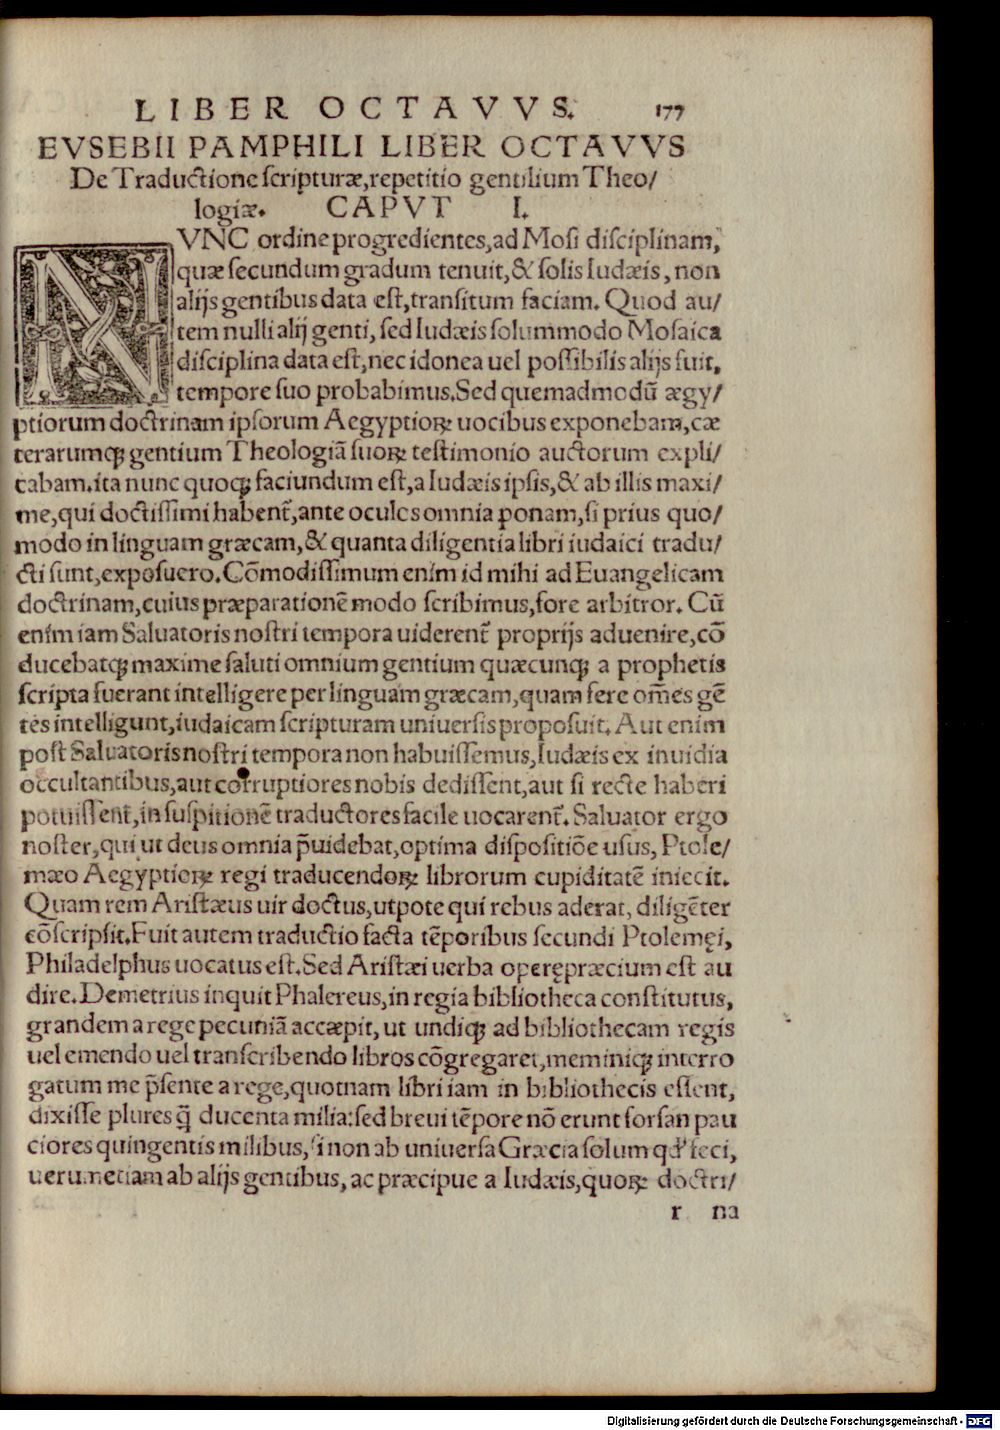 LIBER OCTAVVS. 177
EVSEBII PAMPHILI LIBER OCTAVVS
De Traductione scripturæ,repetitio gentilium Theo/
logiæ. CAPVT I.
NVNC ordine progredientes,ad Mosi disciplinam,
quæ secundum gradum tenuit,& solis Iudæis, non
alijs gentibus data est,transitum faciam. Quod au/
tem nulli alij genti, sed Iudæis solummodo Mosaica
disciplina data est,nec idonea uel possibilis alijs fuit,
tempore suo probabimus.Sed quemadmodū ægy/
ptiorum doctrinam ipsorum Aegyptioꝝ uocibus exponebam,cæ
terarumqꝫ gentium Theologiā suoꝝ testimonio auctorum expli/
cabam.ita nunc quoqꝫ faciundum est,a Iudæis ipsis,& ab illis maxi/
me,qui doctissimi habent̃,ante oculcs omnia ponam,si prius quo/
modo in linguam græcam,& quanta diligentia libri iudaici tradu/
cti sunt,exposuero.Cōmodissimum enim id mihi ad Euangelicam
doctrinam,cuius præparationē modo scribimus,fore arbitror. Cū
enim iam Saluatoris nostri tempora uiderent̃ proprijs aduenire,cō
ducebatqꝫ maxime saluti omnium gentium quæcunqꝫ a prophetis
scripta fuerant intelligere per linguam græcam,quam fere om̄es gē
tes intelligunt,iudaicam scripturam uniuersis proposuit. Aut enim
post Saluatoris nostri tempora non habuissemus,Iudæis ex inuidia
occultantibus,aut corruptiores nobis dedissent,aut si recte haberi
potuissent̃,in suspitionē traductores facile uocarent̃. Saluator ergo
noster,qui ut deus omnia p̄uidebat,optima dispositiōe usus, Ptole/
mæo Aegyptioꝝ regi traducendoꝝ librorum cupiditatē iniecit.
Quam rem Aristæus uir doctus,utpote qui rebus aderat, diligēter
cōscripsit.Fuit autem traductio facta tēporibus secundi Ptolemęi,
Philadelphus uocatus est.Sed Aristæi uerba operępræcium est au
dire.Demetrius inquit Phalereus,in regia bibliotheca constitutus,
grandem a rege pecuniā accæpit, ut undiqꝫ ad bibliothecam regis
uel emendo uel transcribendo libros cōgregaret,meminiqꝫ interro
gatum me p̄sente a rege,quotnam libri iam in bibliothecis essent,
dixisse plures q̄ ducenta milia:sed breui tēpore nō erunt forsan pau
ciores quingentis milibus, si non ab uniuersa Græcia solum qd̕ feci,
uerum etiam ab alijs gentibus, ac præcipue a Iudæis,quoꝝ doctri/
r na
Digitalisierung gefördert durch die Deutsche Forschungsgemeinschaft - DFG